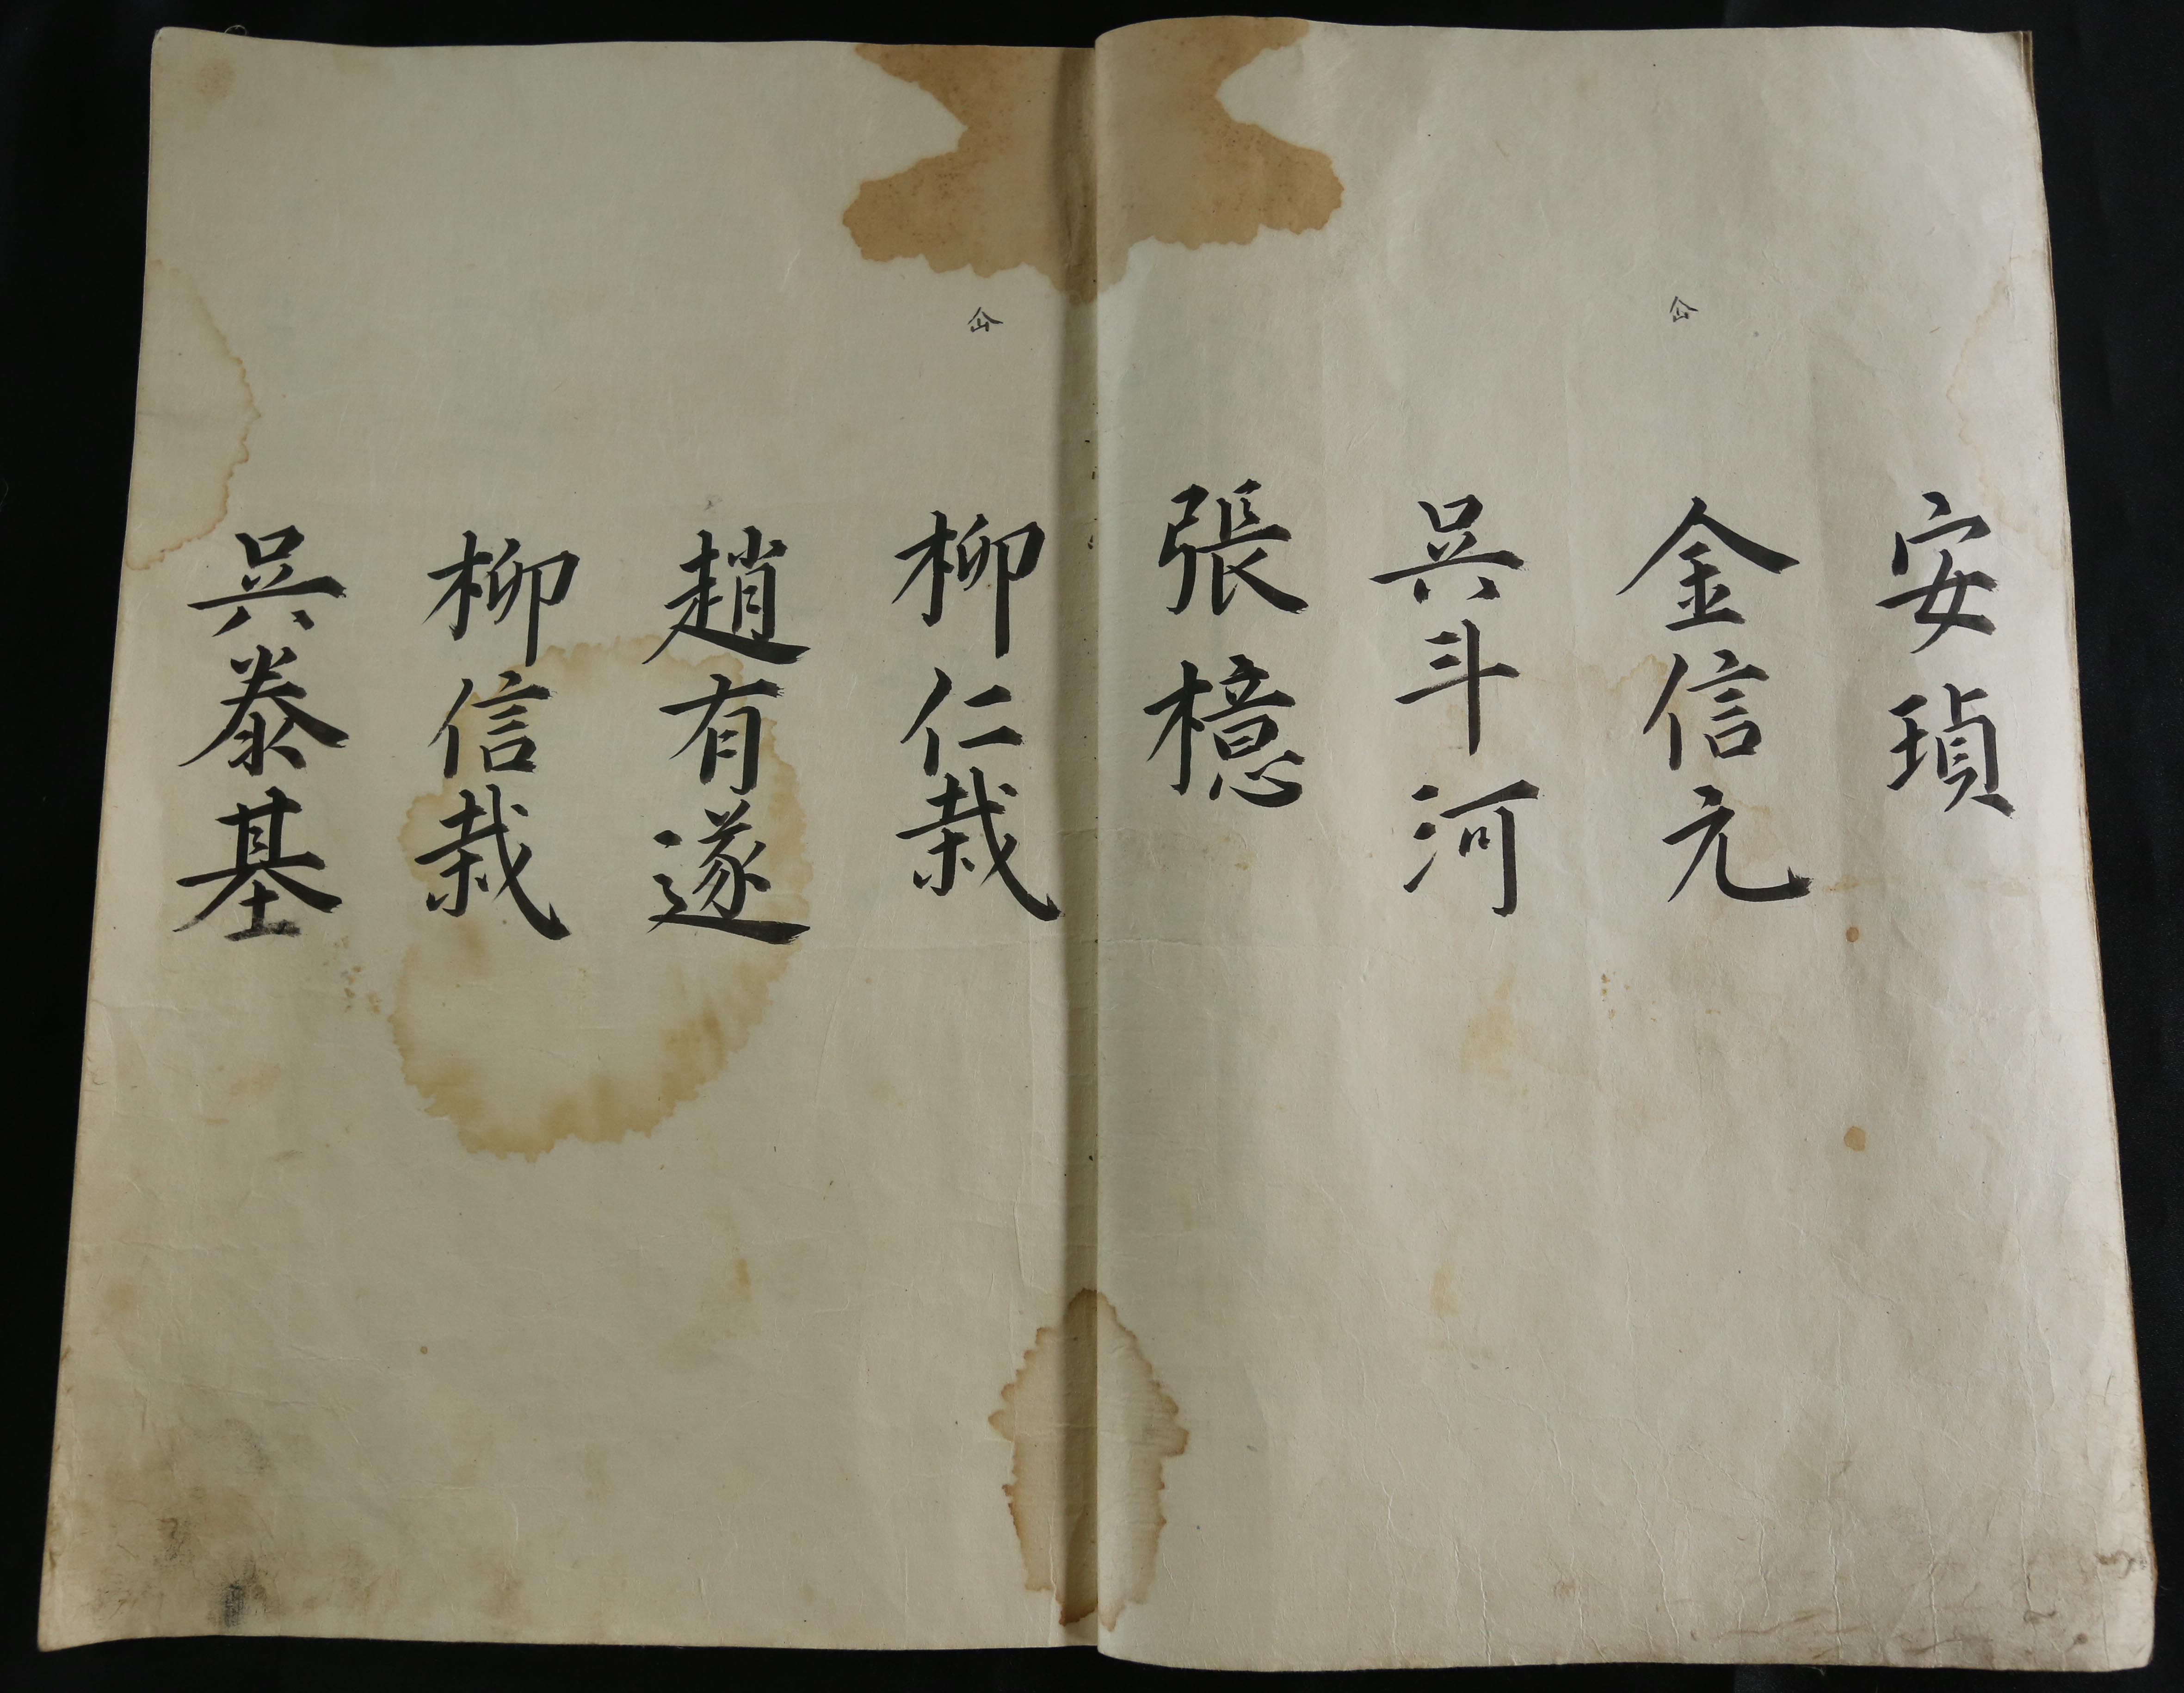 安瑱
仚
金信元
吳斗河
張檍
仚
柳仁栽
趙有遂
柳信栽
吳泰基